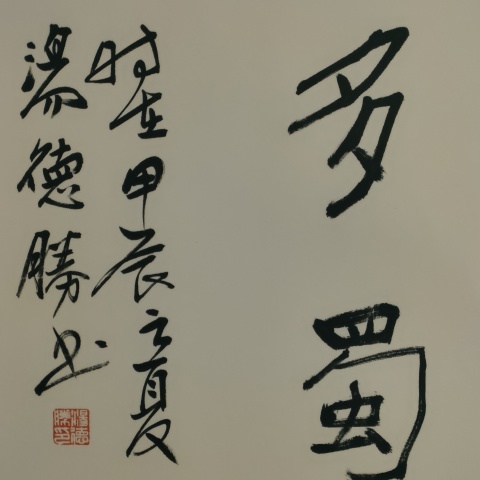 多蜀
时在甲辰之夏
湯德勝书